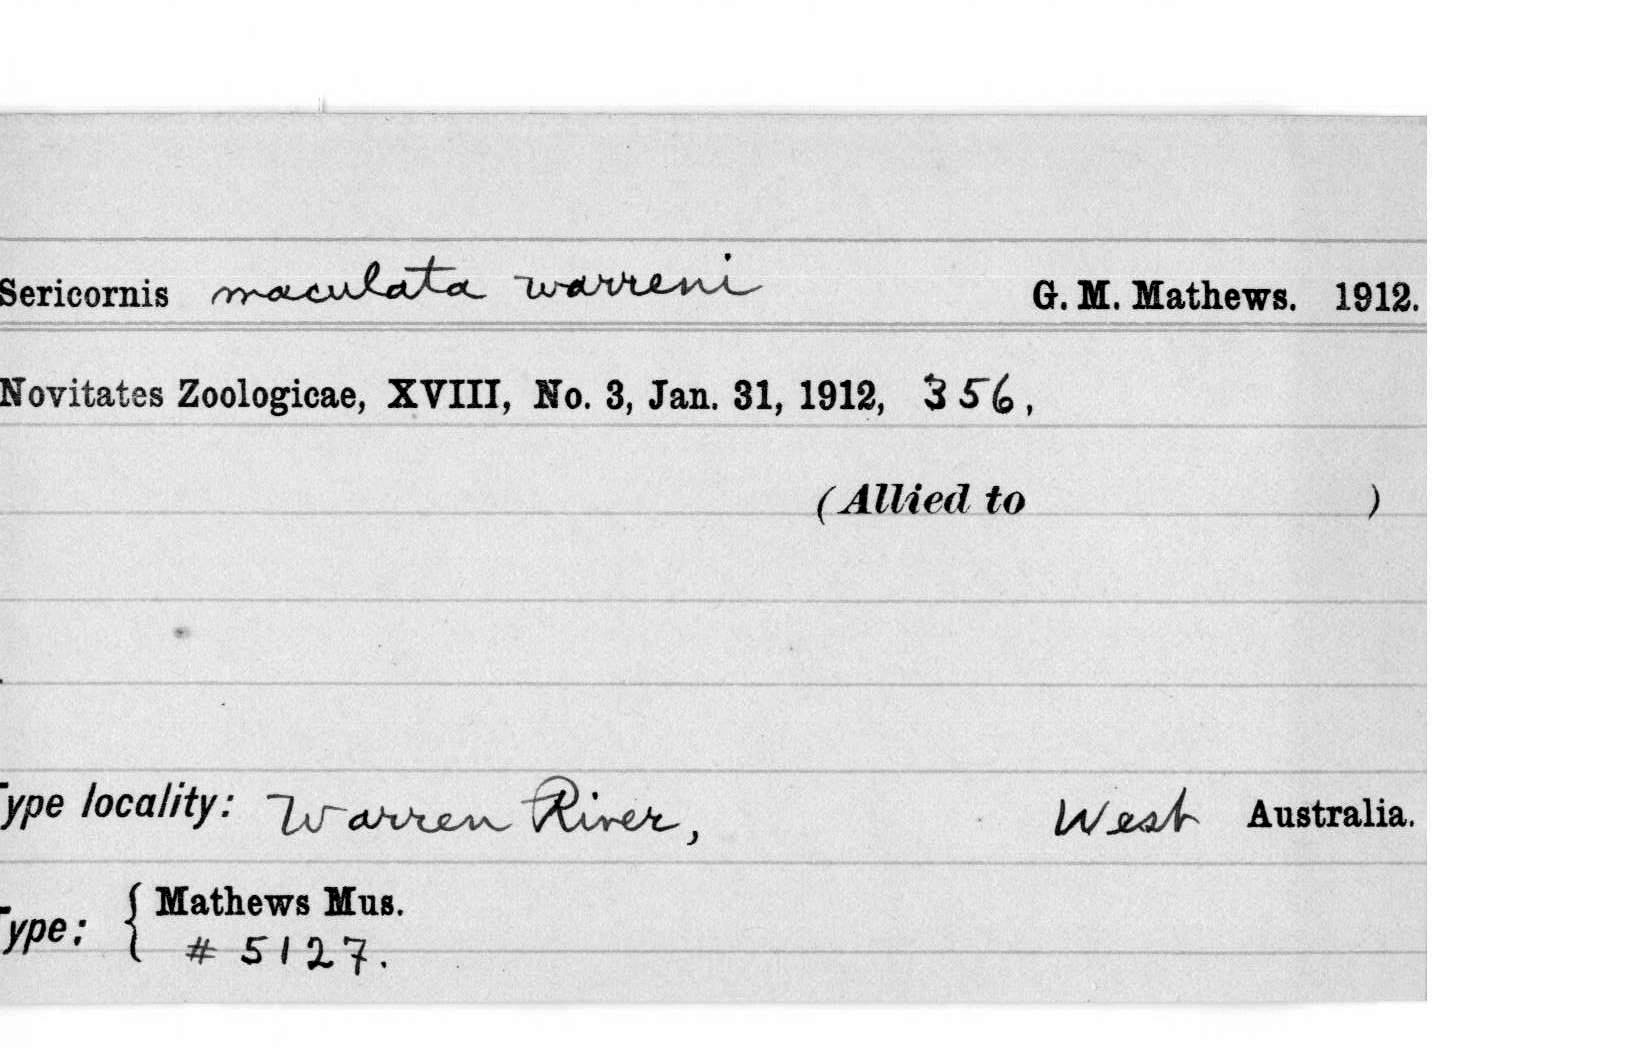 Sericornis maculata warreni G. M. Mathews. 1912.
Novitates Zoologicae, XVIII, No. 3, Jan. 31, 1912, 356,
(Allied to )
Type locality: Warren River, West Australia.
Type: { Mathews Mus.
# 5127.